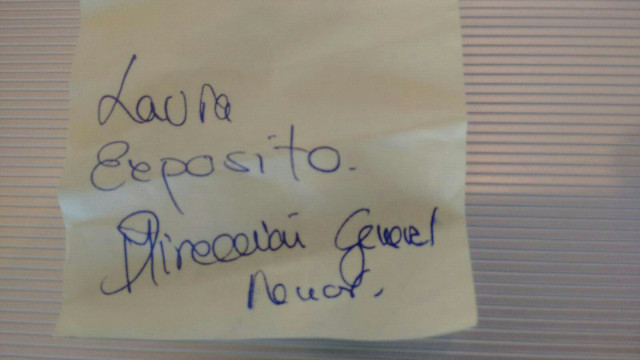 Laura
Exposito.
Dirección General
Menor.